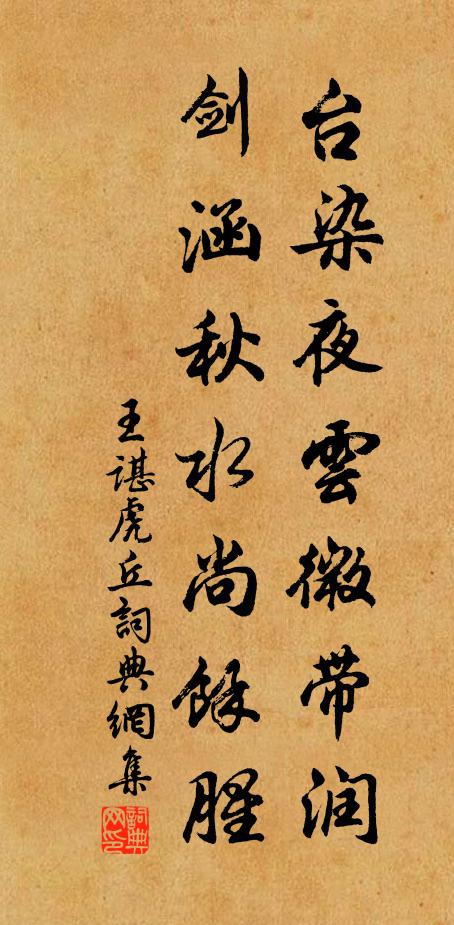 台染夜雲微带润
剑涵秋水尚餘腥
王谌虎丘詞典網集
詞典网印